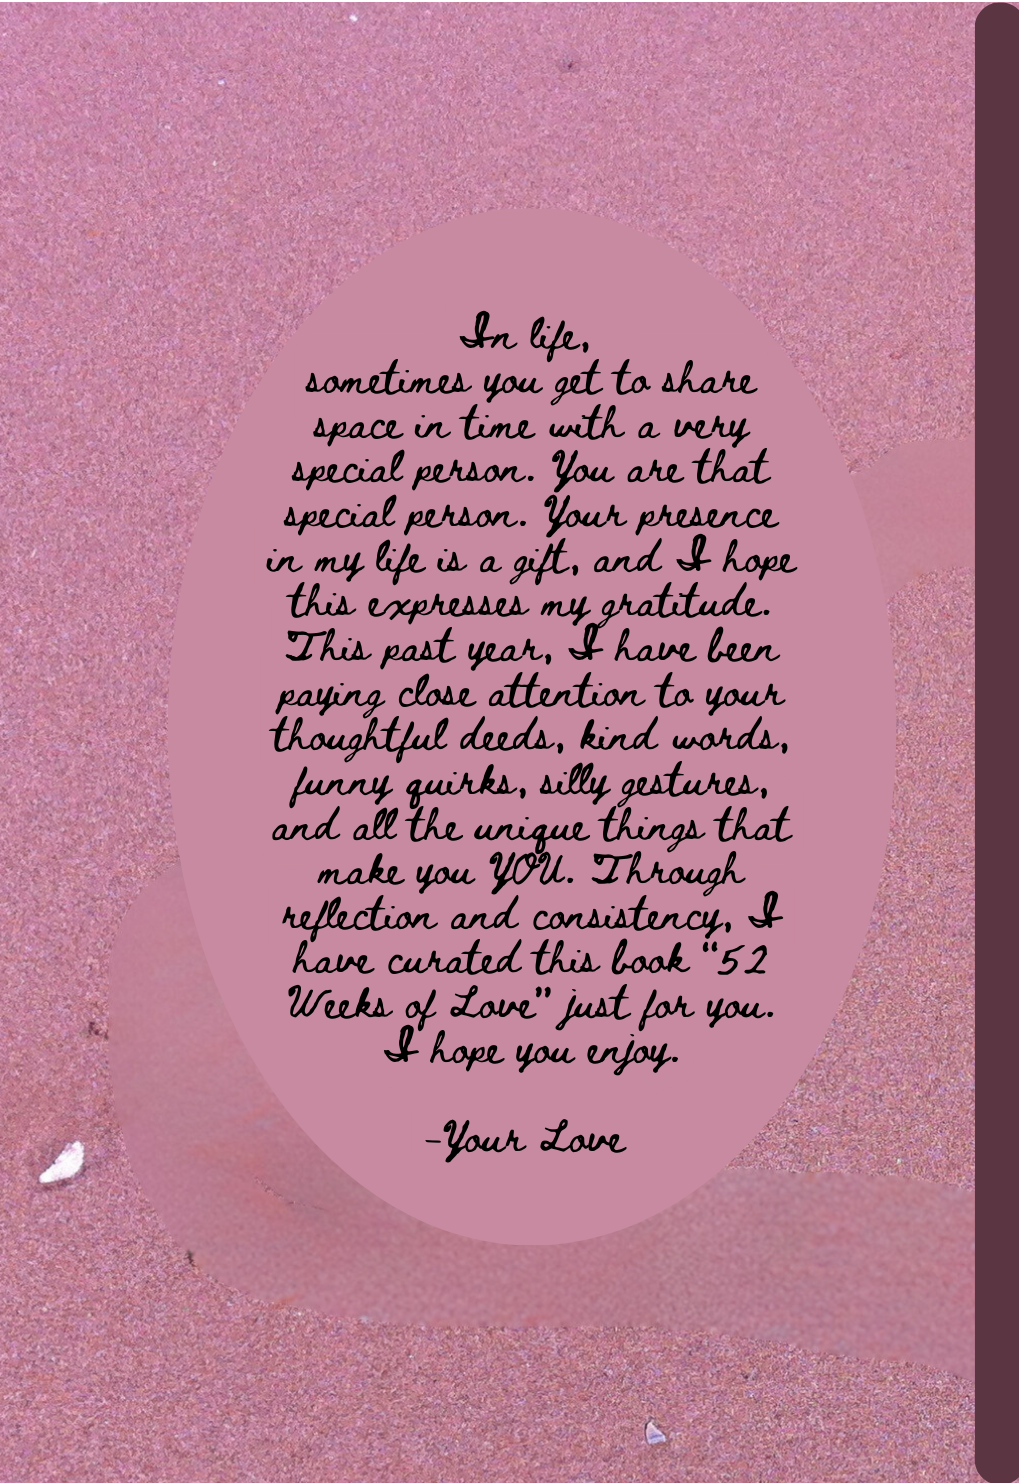 In life,
sometimes you get to share
space in time with a very
special person. You are that
special person. Your presence
in my life is a gift, and I hope
this expresses my gratitude.
This past year, I have been
paying close attention to your
thoughtful deeds, kind words,
funny quirks, silly gestures,
and all the unique things that
make you YOU. Through
reflection and consistency, I
have curated this book “52
Weeks of Love” just for you.
I hope you enjoy.
-Your Love